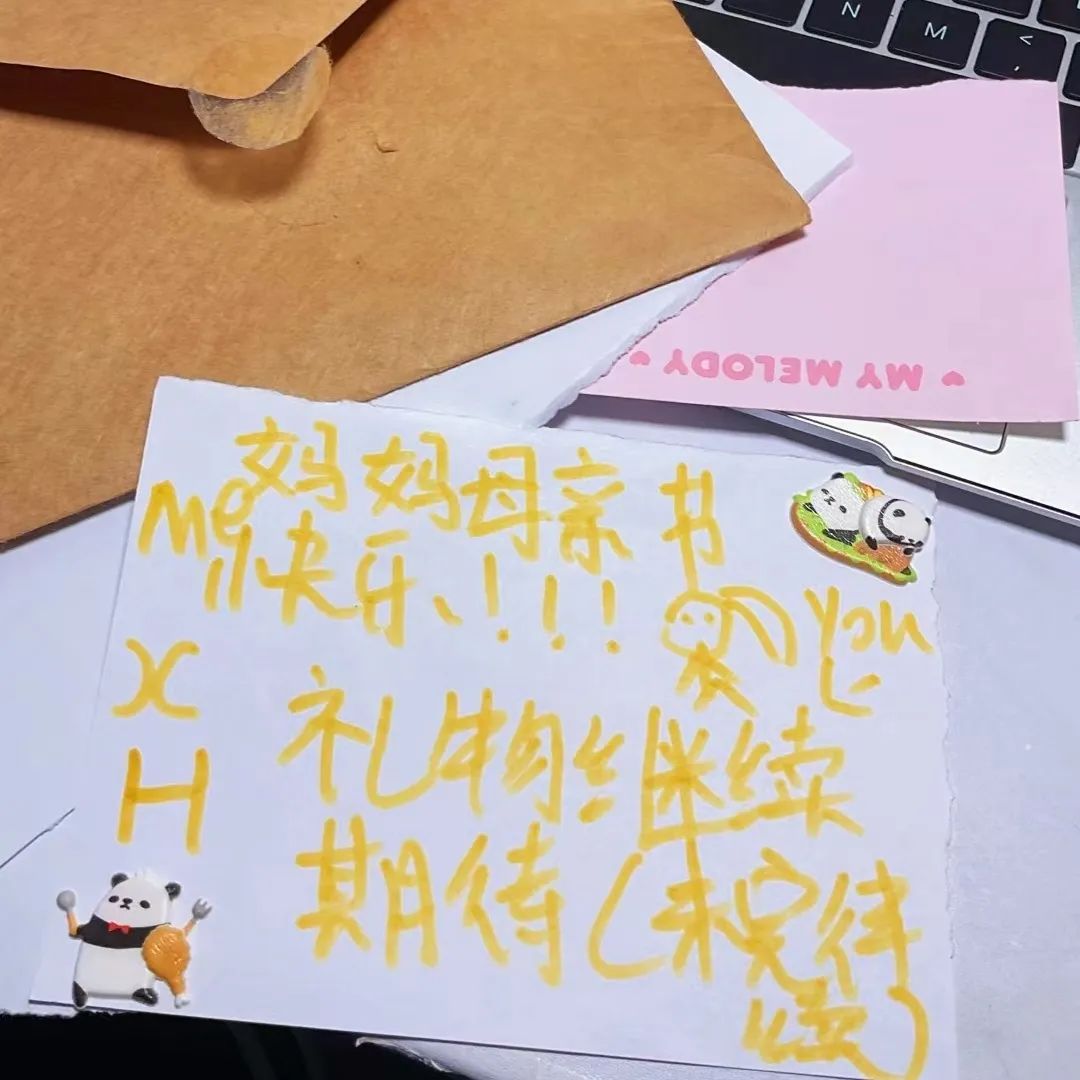 N M <
,
♥ MY MELODY ♥
妈妈母亲书
Me
快乐、!!!
You
X
礼物继续
H
期待(未完待
续)